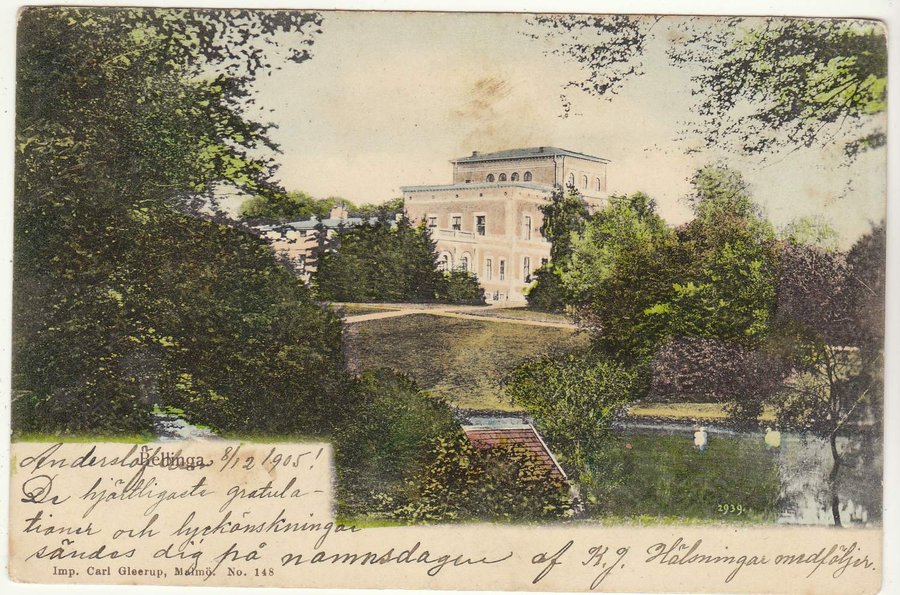 Anderslöf 8/12 1905!
Jellinga.
De hjärtligaste gratula-
tioner och lyckönskningar
sändes dig på namnsdagen af K. J. Hälsningar medföljer.
2939.
Imp. Carl Gleerup, Malmö. No. 148